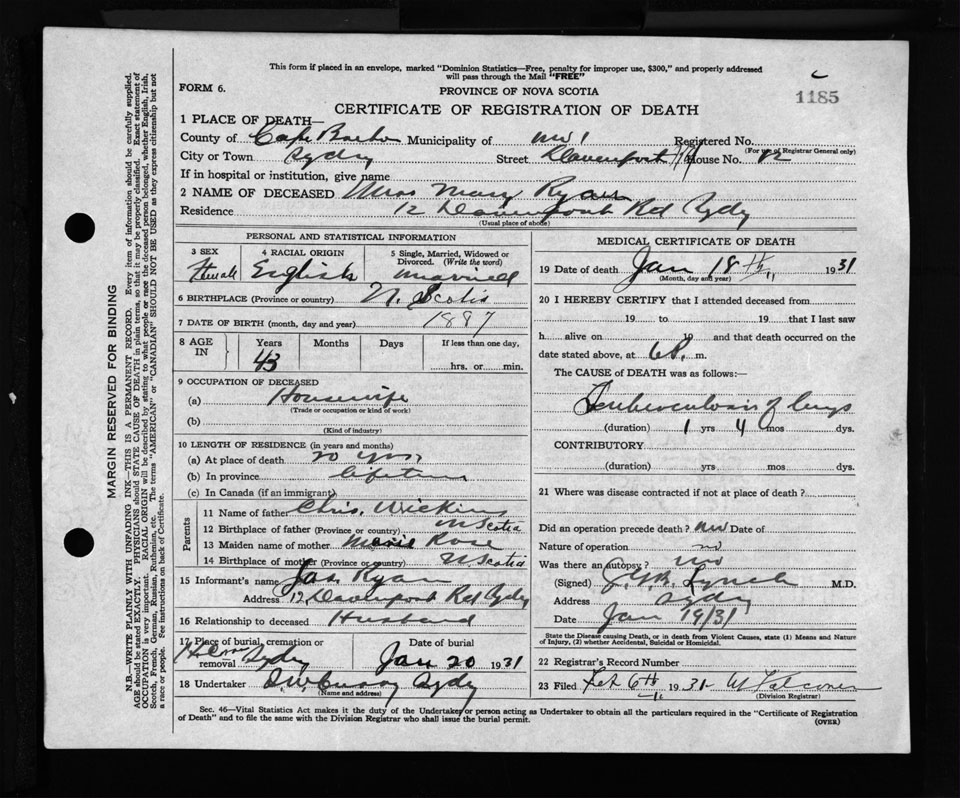 This form if placed in an envelope, marked "Dominion Statistics—Free, penalty for improper use, $300," and properly addressed
will pass through the Mail "FREE"
FORM 6.
PROVINCE OF NOVA SCOTIA
1185
CERTIFICATE OF REGISTRATION OF DEATH
1 PLACE OF DEATH—
County of Cape Breton Municipality of No 1 Registered No.
(For use of Registrar General only)
City or Town Sydney Street Davenport Rd House No. 12
If in hospital or institution, give name
2 NAME OF DECEASED Mrs Mary Ryan
Residence 12 Davenport Rd Sydney
(Usual place of abode)
PERSONAL AND STATISTICAL INFORMATION
3 SEX 4 RACIAL ORIGIN 5 Single, Married, Widowed or Divorced. (Write the word)
Female English Married
6 BIRTHPLACE (Province or country) N. Scotia
7 DATE OF BIRTH (month, day and year) 1887
8 AGE IN Years Months Days If less than one day,
43 hrs. or min.
9 OCCUPATION OF DECEASED
(a) Housewife
(Trade or occupation or kind of work)
(b)
(Kind of industry)
10 LENGTH OF RESIDENCE (in years and months)
(a) At place of death 20 yrs
(b) In province lifetime
(c) In Canada (if an immigrant)
Parents
11 Name of father Chris. Wickins
12 Birthplace of father (Province or country) N Scotia
13 Maiden name of mother Marie Rose
14 Birthplace of mother (Province or country) N. Scotia
15 Informant's name Jas. Ryan
Address 12 Davenport Rd Sydney
16 Relationship to deceased Husband
17 Place of burial, cremation or removal Sydney
Date of burial Jan 20 1931
18 Undertaker Sydney
(Name and address)
MEDICAL CERTIFICATE OF DEATH
19 Date of death Jan 18th 1931
(Month, day and year)
20 I HEREBY CERTIFY that I attended deceased from
19 to 19 that I last saw
h alive on 19 and that death occurred on the
date stated above, at 6 P. m.
The CAUSE of DEATH was as follows:—
Tuberculosis of lungs
(duration) 1 yrs 4 mos dys.
CONTRIBUTORY
(duration) yrs mos dys.
21 Where was disease contracted if not at place of death?
Did an operation precede death? no Date of
Nature of operation no
Was there an autopsy? no
(Signed) Lynch M.D.
Address Sydney
Date Jan 19/31
State the Disease causing Death, or in death from Violent Causes, state (1) Means and Nature
of Injury, (2) whether Accidental, Suicidal or Homicidal.
22 Registrar's Record Number
23 Filed Feb 6th 1931 W Falconer
(Division Registrar)
Sec. 46—Vital Statistics Act makes it the duty of the Undertaker or person acting as Undertaker to obtain all the particulars required in the "Certificate of Registration
of Death" and to file the same with the Division Registrar who shall issue the burial permit.
(OVER)
MARGIN RESERVED FOR BINDING
N.B.—WRITE PLAINLY WITH UNFADING INK—THIS IS A PERMANENT RECORD. Every item of information should be carefully supplied.
AGE should be stated EXACTLY. PHYSICIANS should STATE CAUSE OF DEATH in plain terms, so that it may be properly classified. Exact statement of
OCCUPATION is very important. RACIAL ORIGIN will be described by stating to what people or race the deceased person belonged, whether English, Irish,
Scotch, French, German, Russian, Ruthenian, etc. The terms "AMERICAN" or "CANADIAN" SHOULD NOT BE USED as they express citizenship but not
a race or people. Fee instructions on back of Certificate.